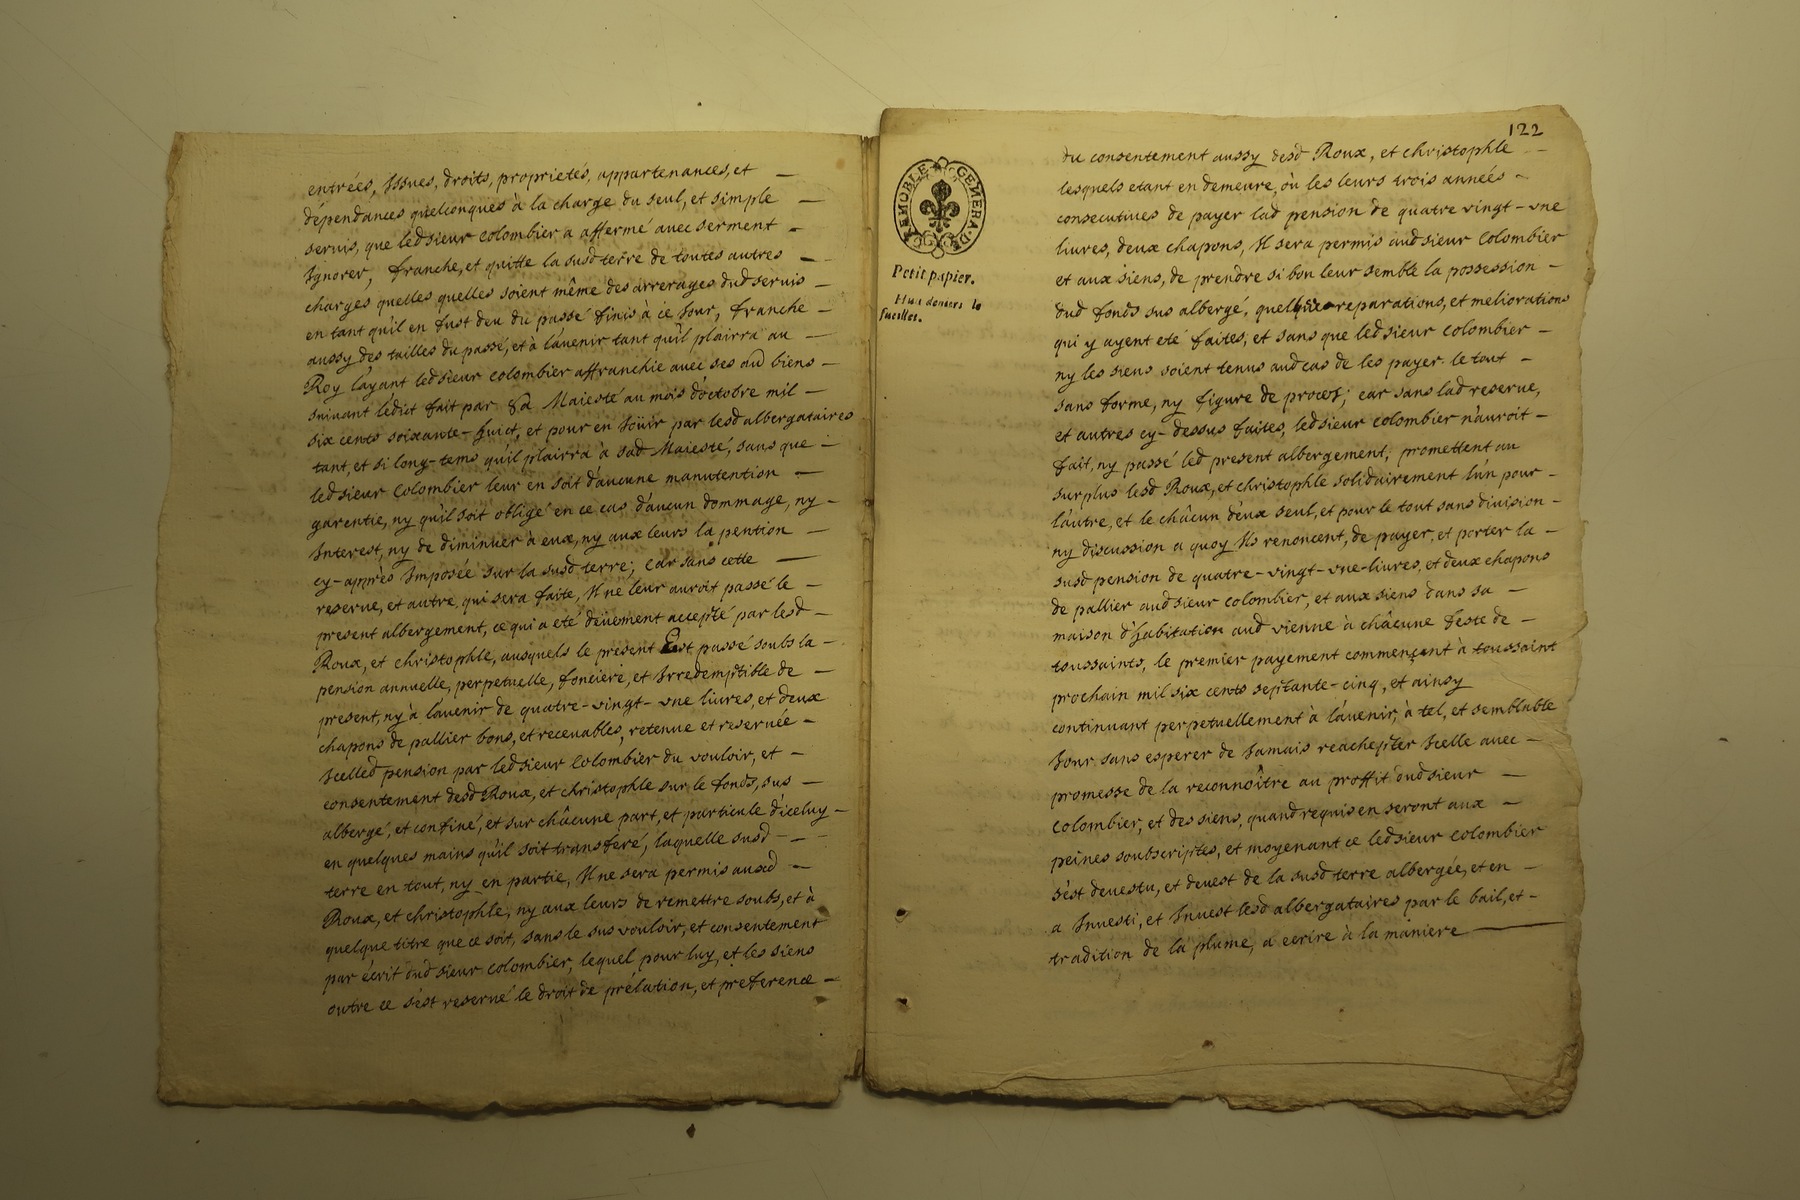 entrées, Issues, droits, proprietés, appartenances, et
dépendances quelconques à la charge du seul, et simple
servis, que led sieur Colombier a affermé avec serment
Ignorer, franche, et quitte la susd terre de toutes autres
charges quelles quelles soient même des arrerages dud servis
en tant qu'il en fust deu du passé finis à ce Jour, franche
aussy des tailles du passé, et à l'avenir tant qu'il plairra au
Roy l'ayant led sieur Colombier affranchie avec ses aud biens
suivant l'édict fait par Sa Maiesté au mois d'octobre mil
six cents soixante-huict, et pour en Joüir par lesd albergataires
tant, et si long-tems qu'il plairra à sad Maiesté, sans que
led sieur Colombier leur en soit d'aucune manutention
garentie, ny qu'il soit obligé en ce cas d'aucun dommage, ny
Interest, ny de diminuer à eux, ny aux leurs la pention
cy-apprès Imposée sur la susd terre; car sans cette
reserve, et autre, qui sera faite, Il ne leur auroit passé le
present albergement, ce qui a eté deüement accepté par lesd
Roux, et christophle, ausquels le présent Est passé soubs la
pension annuelle, perpetuelle, fonciere, et Irredemptible de
present, ny à l'avenir de quatre-vingt-vne livres, et deux
chapons de pallier bons, et recevables, retenue et reservée
Icelled pension par led sieur Colombier du vouloir, et
consentement desd Roux, et christophle sur le fonds, sus
albergé, et confiné, et sur châcune part, et particule d'iceluy
en quelques mains qu'il soit transferé, laquelle susd
terre en tout, ny en partie, Il ne sera permis ausd
Roux, et christophle, ny aux leurs de remettre soubs, et à
quelque titre que ce soit, sans le sus vouloir, et consentement
par écrit dud sieur Colombier, lequel pour luy, et les siens
outre ce s'est reservé le droit de prélation, et preference
122
GRENOBLE GENERA. DE
Petit papier.
Huit deniers le
fueillet.
du consentement aussy desd Roux, et christophle
lesquels etant en demeure, où les leurs trois années
consecutives de payer lad pension de quatre vingt-vne
livres, deux chapons, Il sera permis aud sieur Colombier
et aux siens, de prendre si bon leur semble la possession
dud fonds sus albergé, quelques reparations, et meliorations
qui y ayent eté faites, et sans que led sieur Colombier
ny les siens soient tenus aud cas de les payer. le tout
sans forme, ny figure de procez; car sans lad reserve,
et autres cy-dessus faites, led sieur colombier n'auroit
fait, ny passé led present albergement, promettent au
surplus lesd Roux, et christophle solidairement l'un pour
l'autre, et le châcun d'eux seul, et pour le tout sans division
ny discussion a quoy Ils renoncent, de payer, et porter la
susd pension de quatre-vingt-vne-livres, et deux chapons
de pallier aud sieur Colombier, et aux siens dans sa
maison d'habitation aud vienne à châcune feste de
toussaints, le premier payement commençant à toussaint
prochain mil six cents septante-cinq, et ainsy
continuant perpetuellement à l'avenir, à tel, et semblable
Jour sans esperer de Jamais reachepter Icelle avec
promesse de la reconnoître au proffit dud sieur
Colombier, et des siens, quand requis en seront aux
peines soubscriptes, et moyenant ce led sieur Colombier
s'est devestu, et devest de la susd terre albergée, et en
a Investi, et Invest lesd albergataires par le bail, et
tradition de la plume, a ecrire à la maniere